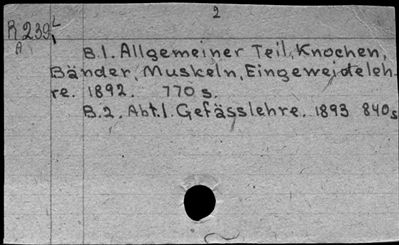 2
R 239 L
A
B.1. Allgemeiner Teil, Knochen,
Bänder, Muskeln, Eingeweideleh-
re. 1892. 770 s.
B.2. Abt.1. Gefässlehre. 1893 840s